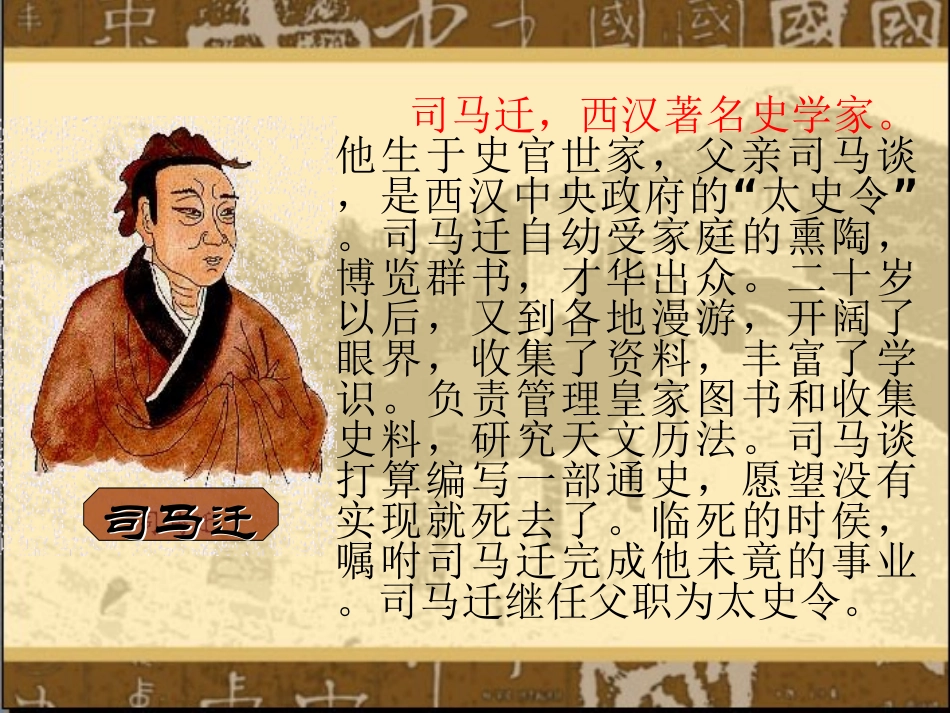 司马迁，西汉著名史学家。
他生于史官世家，父亲司马谈
，是西汉中央政府的“太史令”
。司马迁自幼受家庭的熏陶，
博览群书，才华出众。二十岁
以后，又到各地漫游，开阔了
眼界，收集了资料，丰富了学
识。负责管理皇家图书和收集
史料，研究天文历法。司马谈
打算编写一部通史，愿望没有
实现就死去了。临死的时侯，
嘱咐司马迁完成他未竟的事业
。司马迁继任父职为太史令。
司马迁